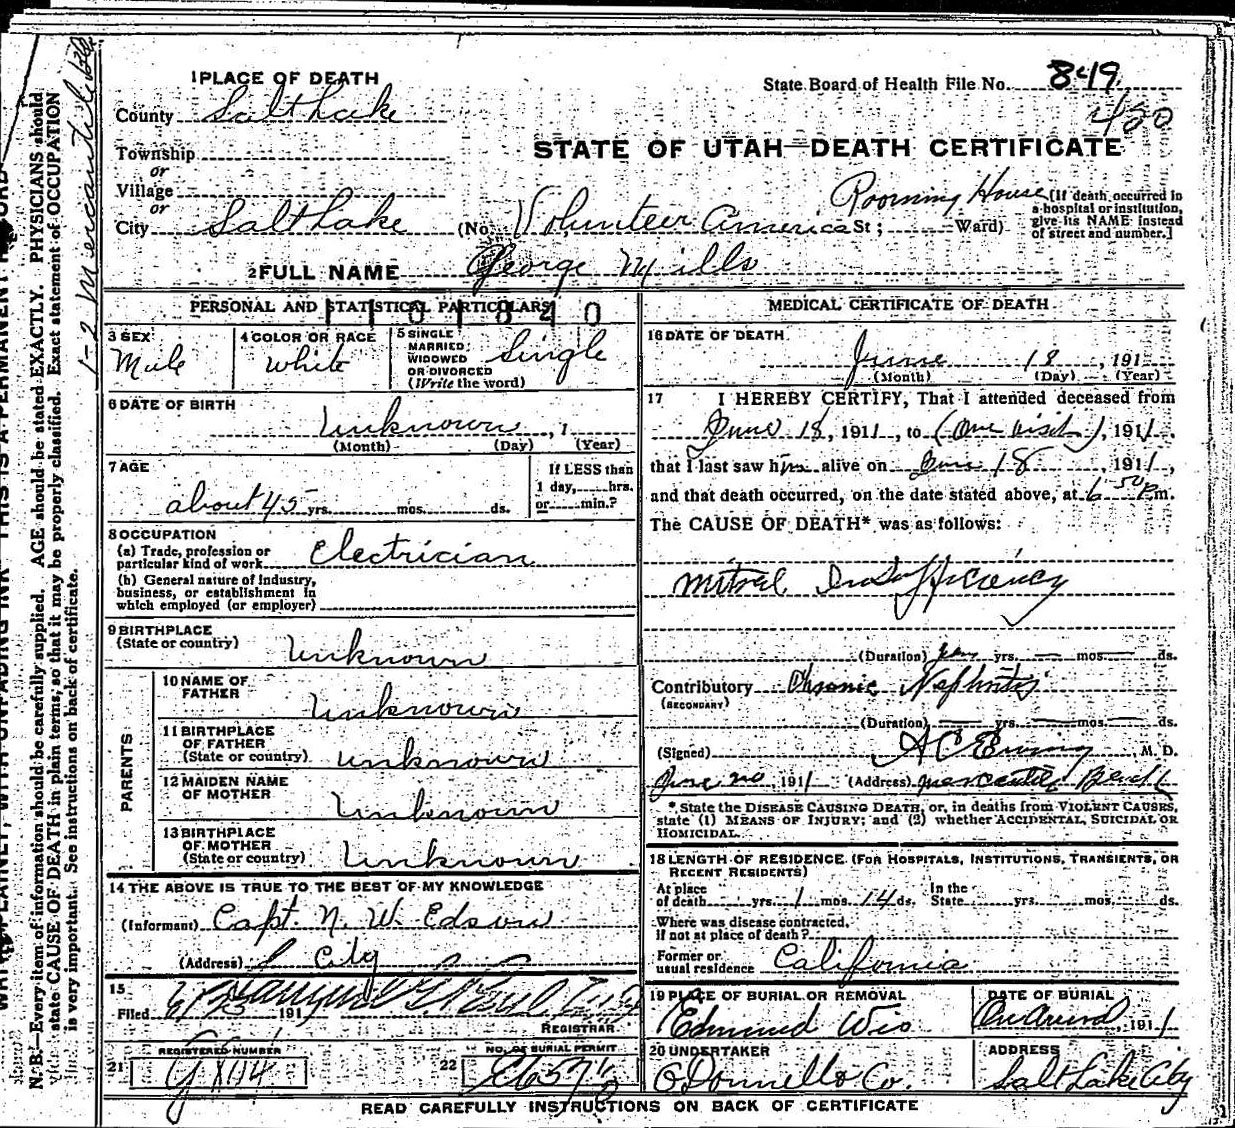 1 PLACE OF DEATH
State Board of Health File No. 849
480
County Salt Lake
STATE OF UTAH—DEATH CERTIFICATE
Township
or
Village
or
City Salt Lake (No. Volunteer America St; Ward) Rooming House
[If death occurred in
a hospital or institution,
give its NAME instead
of street and number.]
2 FULL NAME George Mills
PERSONAL AND STATISTICAL PARTICULARS
1101840
3 SEX
Male
4 COLOR OR RACE
White
5 SINGLE
MARRIED
WIDOWED
OR DIVORCED
(Write the word)
Single
6 DATE OF BIRTH
Unknown, 1
(Month) (Day) (Year)
7 AGE
about 45 yrs. mos. ds.
If LESS than
1 day, hrs.
or min.?
8 OCCUPATION
(a) Trade, profession or
particular kind of work Electrician
(b) General nature of industry,
business, or establishment in
which employed (or employer)
9 BIRTHPLACE
(State or country) Unknown
PARENTS
10 NAME OF
FATHER Unknown
11 BIRTHPLACE
OF FATHER
(State or country) Unknown
12 MAIDEN NAME
OF MOTHER Unknown
13 BIRTHPLACE
OF MOTHER
(State or country) Unknown
14 THE ABOVE IS TRUE TO THE BEST OF MY KNOWLEDGE
(Informant) Capt. N. W. Edson
(Address) City
15
Filed 191
REGISTRAR
21 REGISTERED NUMBER
22 NO. OF BURIAL PERMIT
MEDICAL CERTIFICATE OF DEATH
16 DATE OF DEATH
June 18, 191
(Month) (Day) (Year)
17 I HEREBY CERTIFY, That I attended deceased from
June 18, 1911, to (One visit), 1911,
that I last saw him alive on June 18, 1911,
and that death occurred, on the date stated above, at 6 50 P.m.
The CAUSE OF DEATH* was as follows:
Mitral Insufficiency
(Duration) yrs. mos. ds.
Contributory Chronic Nephritis
(SECONDARY)
(Duration) yrs. mos. ds.
(Signed) A C Ewing M. D.
June 20, 1911 (Address) Mercantile
*State the DISEASE CAUSING DEATH, or, in deaths from VIOLENT CAUSES,
state (1) MEANS OF INJURY; and (2) whether ACCIDENTAL, SUICIDAL OR
HOMICIDAL.
18 LENGTH OF RESIDENCE (FOR HOSPITALS, INSTITUTIONS, TRANSIENTS, OR
RECENT RESIDENTS)
At place
of death yrs. 1 mos. 14 ds.
In the
State yrs. mos. ds.
Where was disease contracted,
If not at place of death?
Former or
usual residence California
19 PLACE OF BURIAL OR REMOVAL
Edmund Wis
DATE OF BURIAL
On Arrival, 1911
20 UNDERTAKER
O'Donnell & Co.
ADDRESS
Salt Lake City
READ CAREFULLY INSTRUCTIONS ON BACK OF CERTIFICATE
THIS IS A PERMANENT RECORD
N. B.—Every item of information should be carefully supplied. AGE should be stated EXACTLY. PHYSICIANS should
state CAUSE OF DEATH in plain terms, so that it may be properly classified. Exact statement of OCCUPATION
is very important. See instructions on back of certificate.
1-2 Mercantile